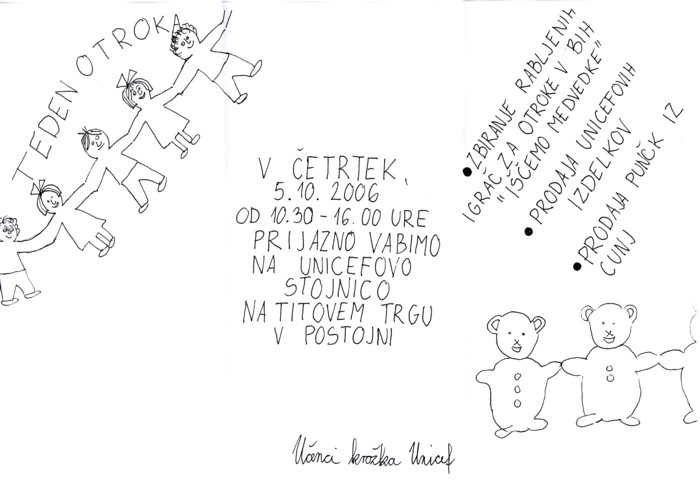 TEDEN OTROKA
V ČETRTEK,
5.10.2006
OD 10.30 - 16.00 URE
PRIJAZNO VABIMO
NA UNICEFOVO
STOJNICO
NA TITOVEM TRGU
V POSTOJNI
Učenci krožka Unicef
• ZBIRANJE RABLJENIH
IGRAČ ZA OTROKE V BIH
"IŠČEMO MEDVEDKE"
• PRODAJA UNICEFOVIH
IZDELKOV
• PRODAJA PUNČK IZ
CUNJ